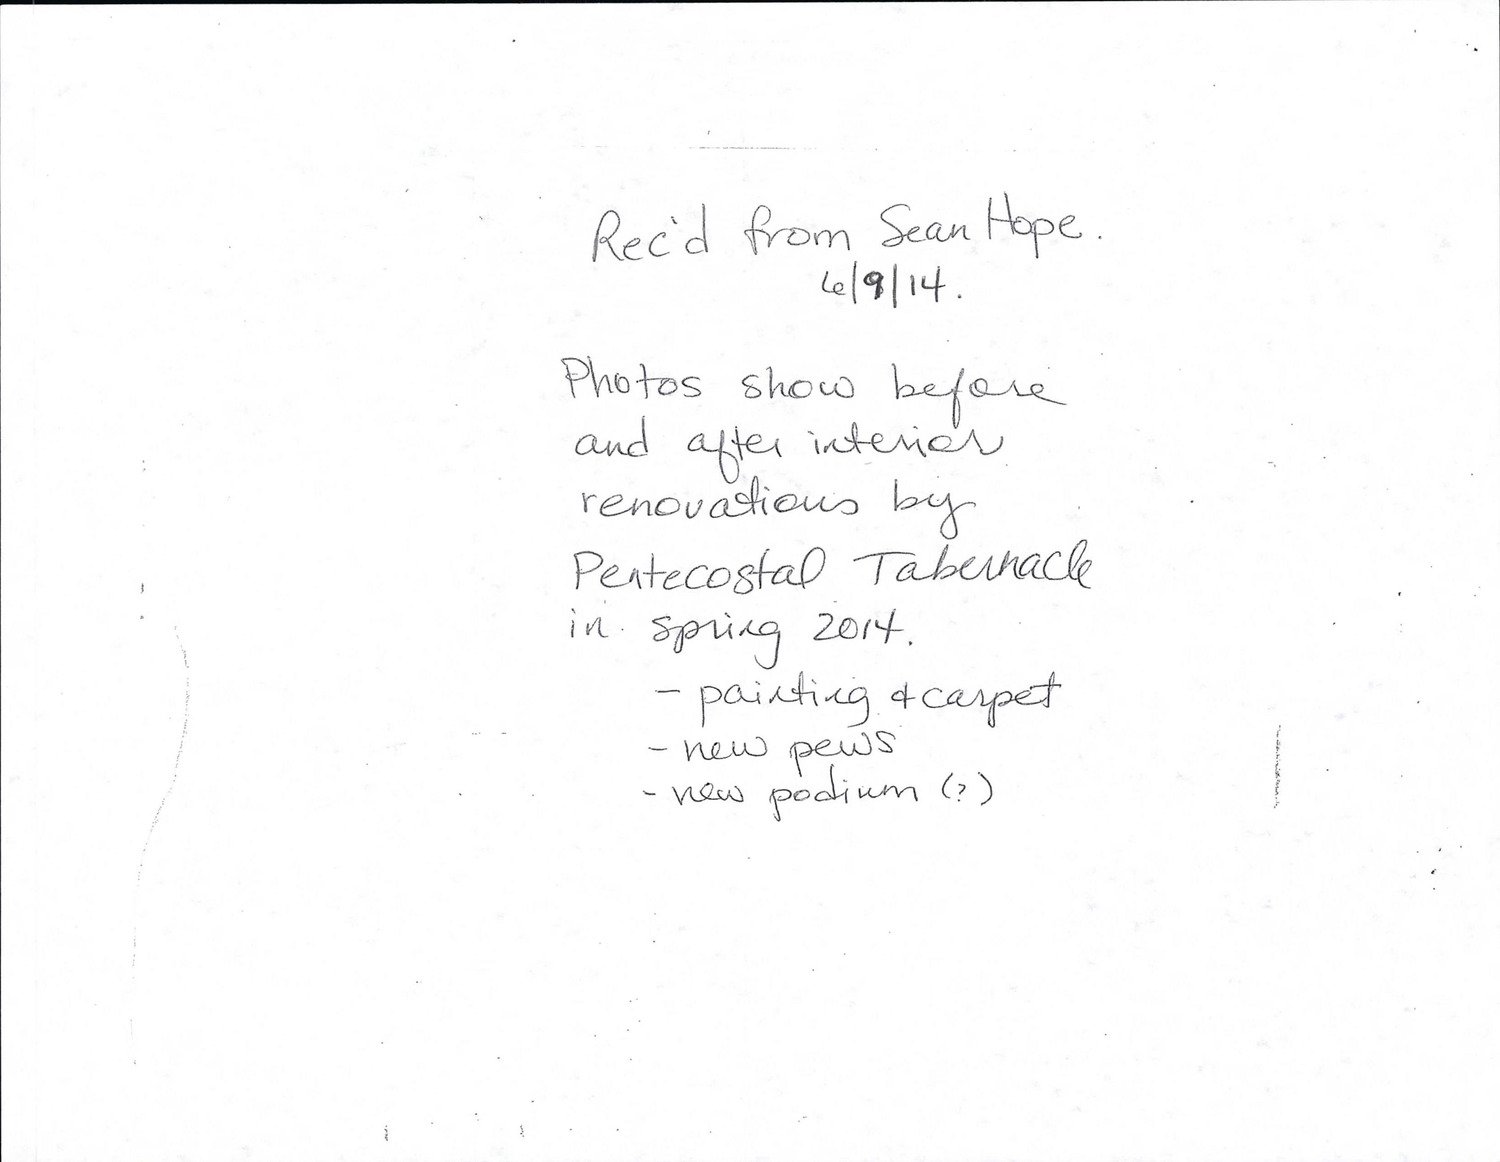 Rec'd from Sean Hope.
6/9/14.
Photos show before
and after interior
renovations by
Pentecostal Tabernacle
in spring 2014.
- painting & carpet
- new pews
- new podium (?)